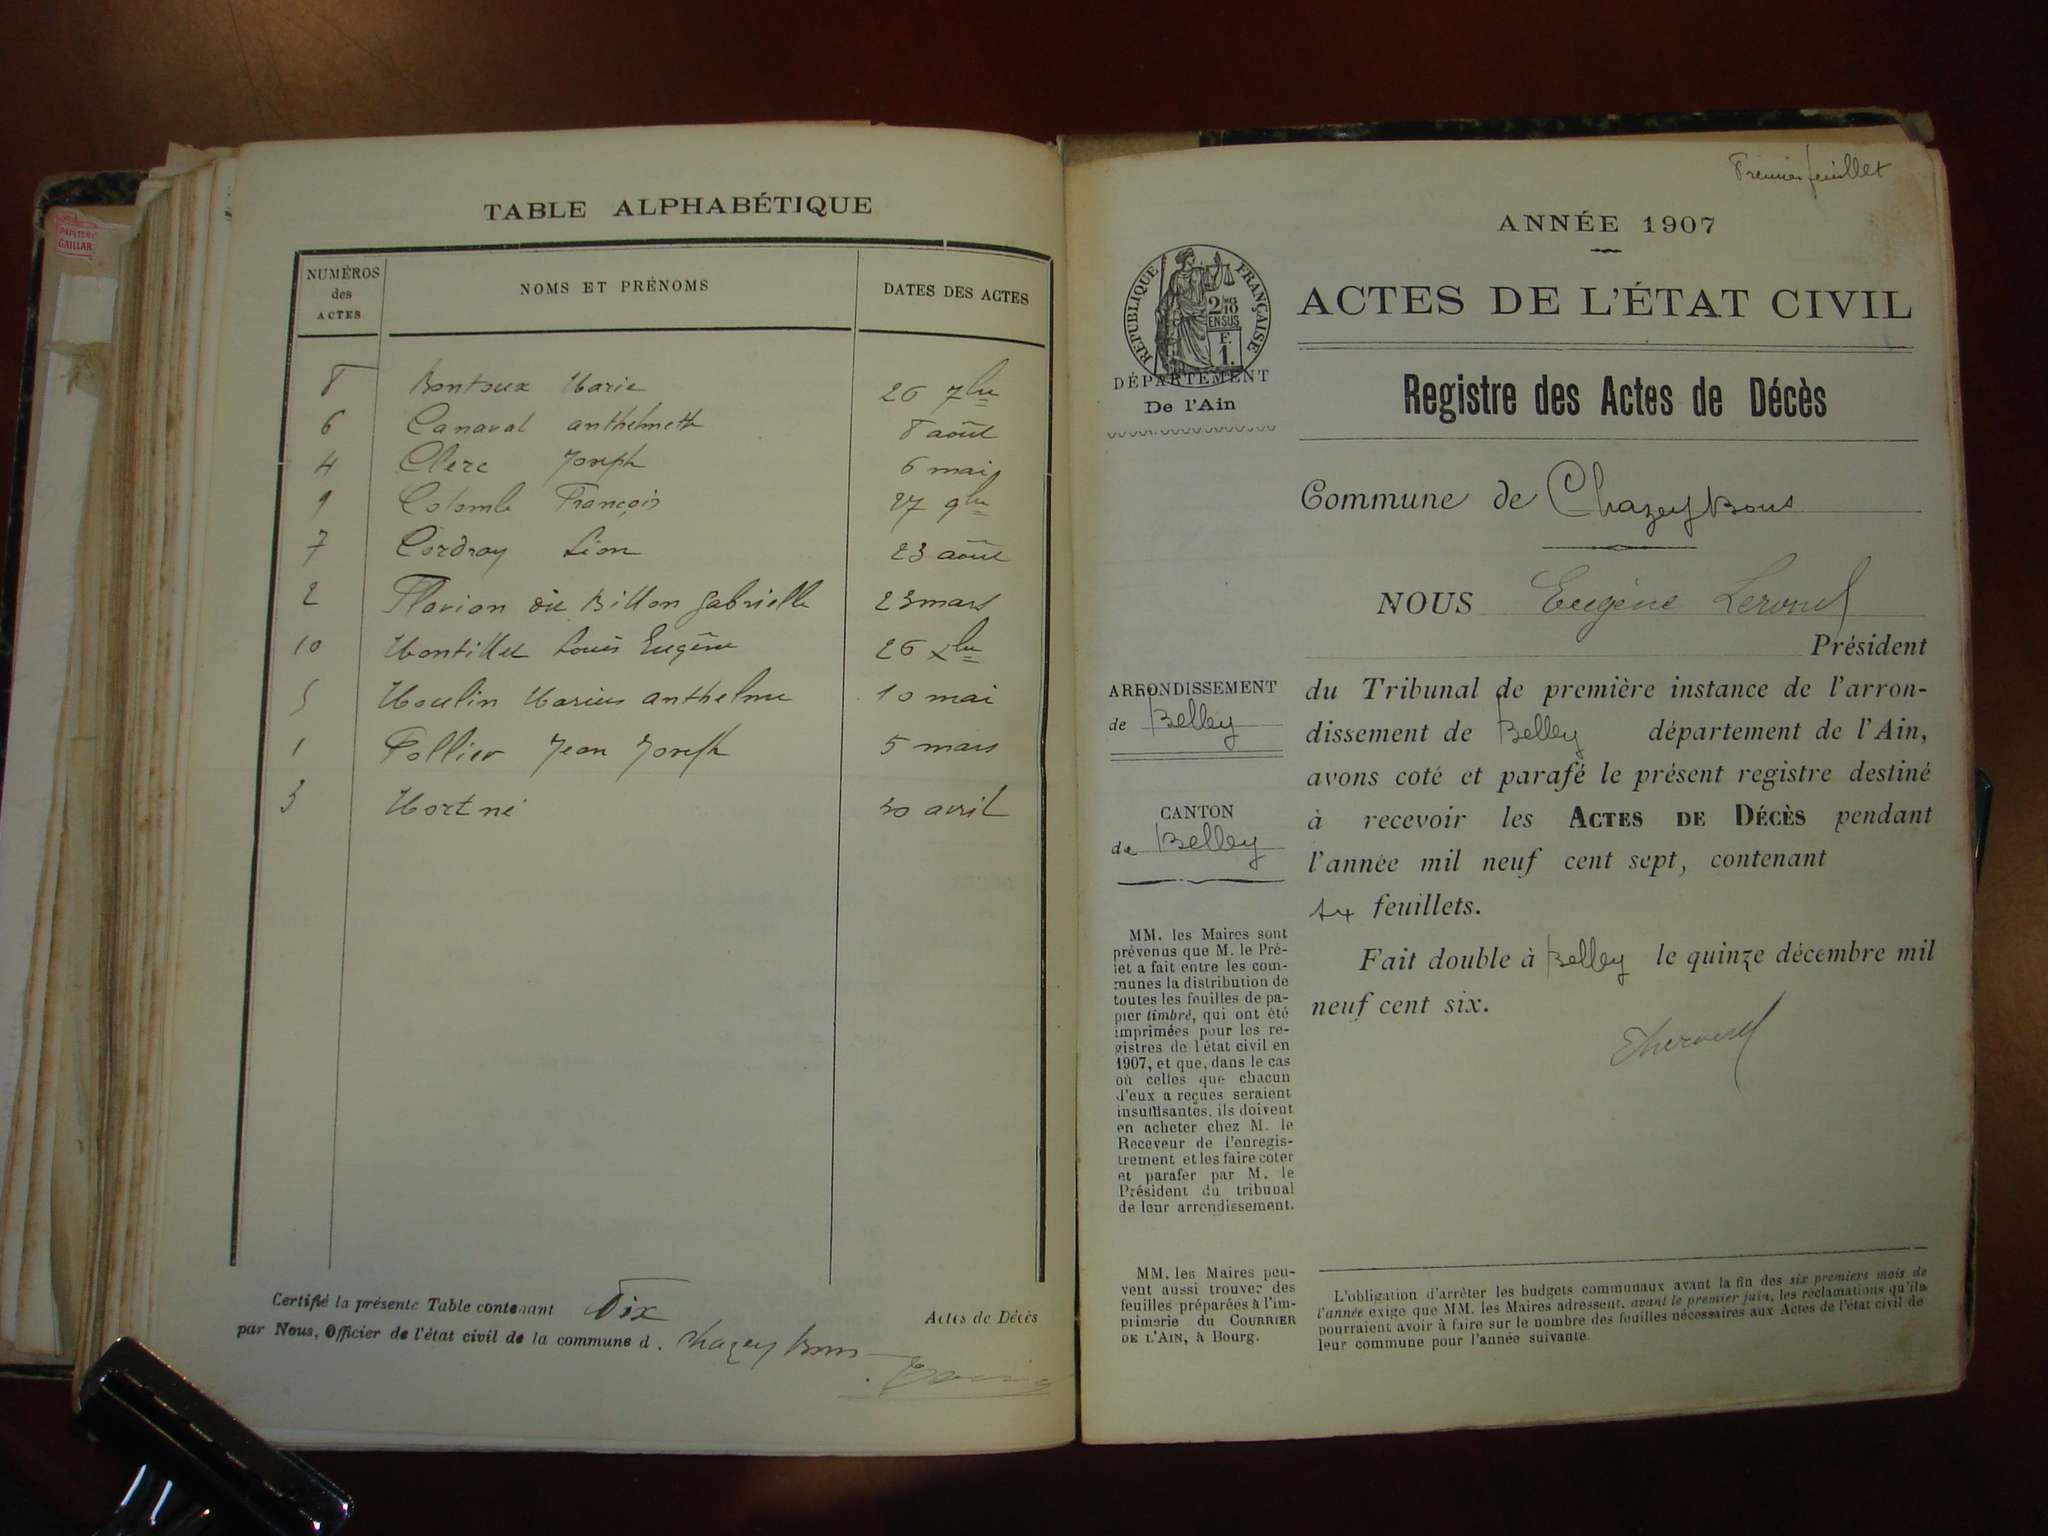 GAILLAR
TABLE ALPHABÉTIQUE
NUMÉROS
des
ACTES
NOMS ET PRÉNOMS
DATES DES ACTES
8 Bontoux Marie 26 7bre
6 Canaval anthelmette 8 août
4 Clerc Joseph 6 mai
9 Colomb François 27 9bre
7 Cordray Léon 23 août
2 Flavian Billon Gabrielle 23 mars
10 Montillet Louis Eugène 26 xbre
5 Moulin Marius anthelme 10 mai
1 Pollier Jean Joseph 5 mars
3 Mort né 30 avril
Certifié la présente Table contenant Dix Actes de Décès
par Nous, Officier de l'état civil de la commune d. Chazey Bons
Premier feuillet
ANNÉE 1907
RÉPUBLIQUE FRANÇAISE
2/10
EN SUS
F.
1.
DÉPARTEMENT
De l'Ain
ACTES DE L'ÉTAT CIVIL
Registre des Actes de Décès
Commune de Chazey Bons
NOUS Eugène
Président
ARRONDISSEMENT
de Belley
CANTON
de Belley
du Tribunal de première instance de l'arron-
dissement de Belley département de l'Ain,
avons coté et parafé le présent registre destiné
à recevoir les ACTES DE DÉCÈS pendant
l'année mil neuf cent sept, contenant
feuillets.
Fait double à Belley le quinze décembre mil
neuf cent six.
MM. les Maires sont
prévenus que M. le Pré-
fet a fait entre les com-
munes la distribution de
toutes les feuilles de pa-
pier timbré, qui ont été
imprimées pour les re-
gistres de l'état civil en
1907, et que, dans le cas
où celles que chacun
d'eux a reçues seraient
insuffisantes, ils doivent
en acheter chez M. le
Receveur de l'enregis-
trement et les faire coter
et parafer par M. le
Président du tribunal
de leur arrondissement.
MM. les Maires peu-
vent aussi trouver des
feuilles préparées à l'im-
primerie du COURRIER
DE L'AIN, à Bourg.
L'obligation d'arrêter les budgets communaux avant la fin des six premiers mois de
l'année exige que MM. les Maires adressent, avant le premier juin, les réclamations qu'ils
pourraient avoir à faire sur le nombre des feuilles nécessaires aux Actes de l'état civil de
leur commune pour l'année suivante.